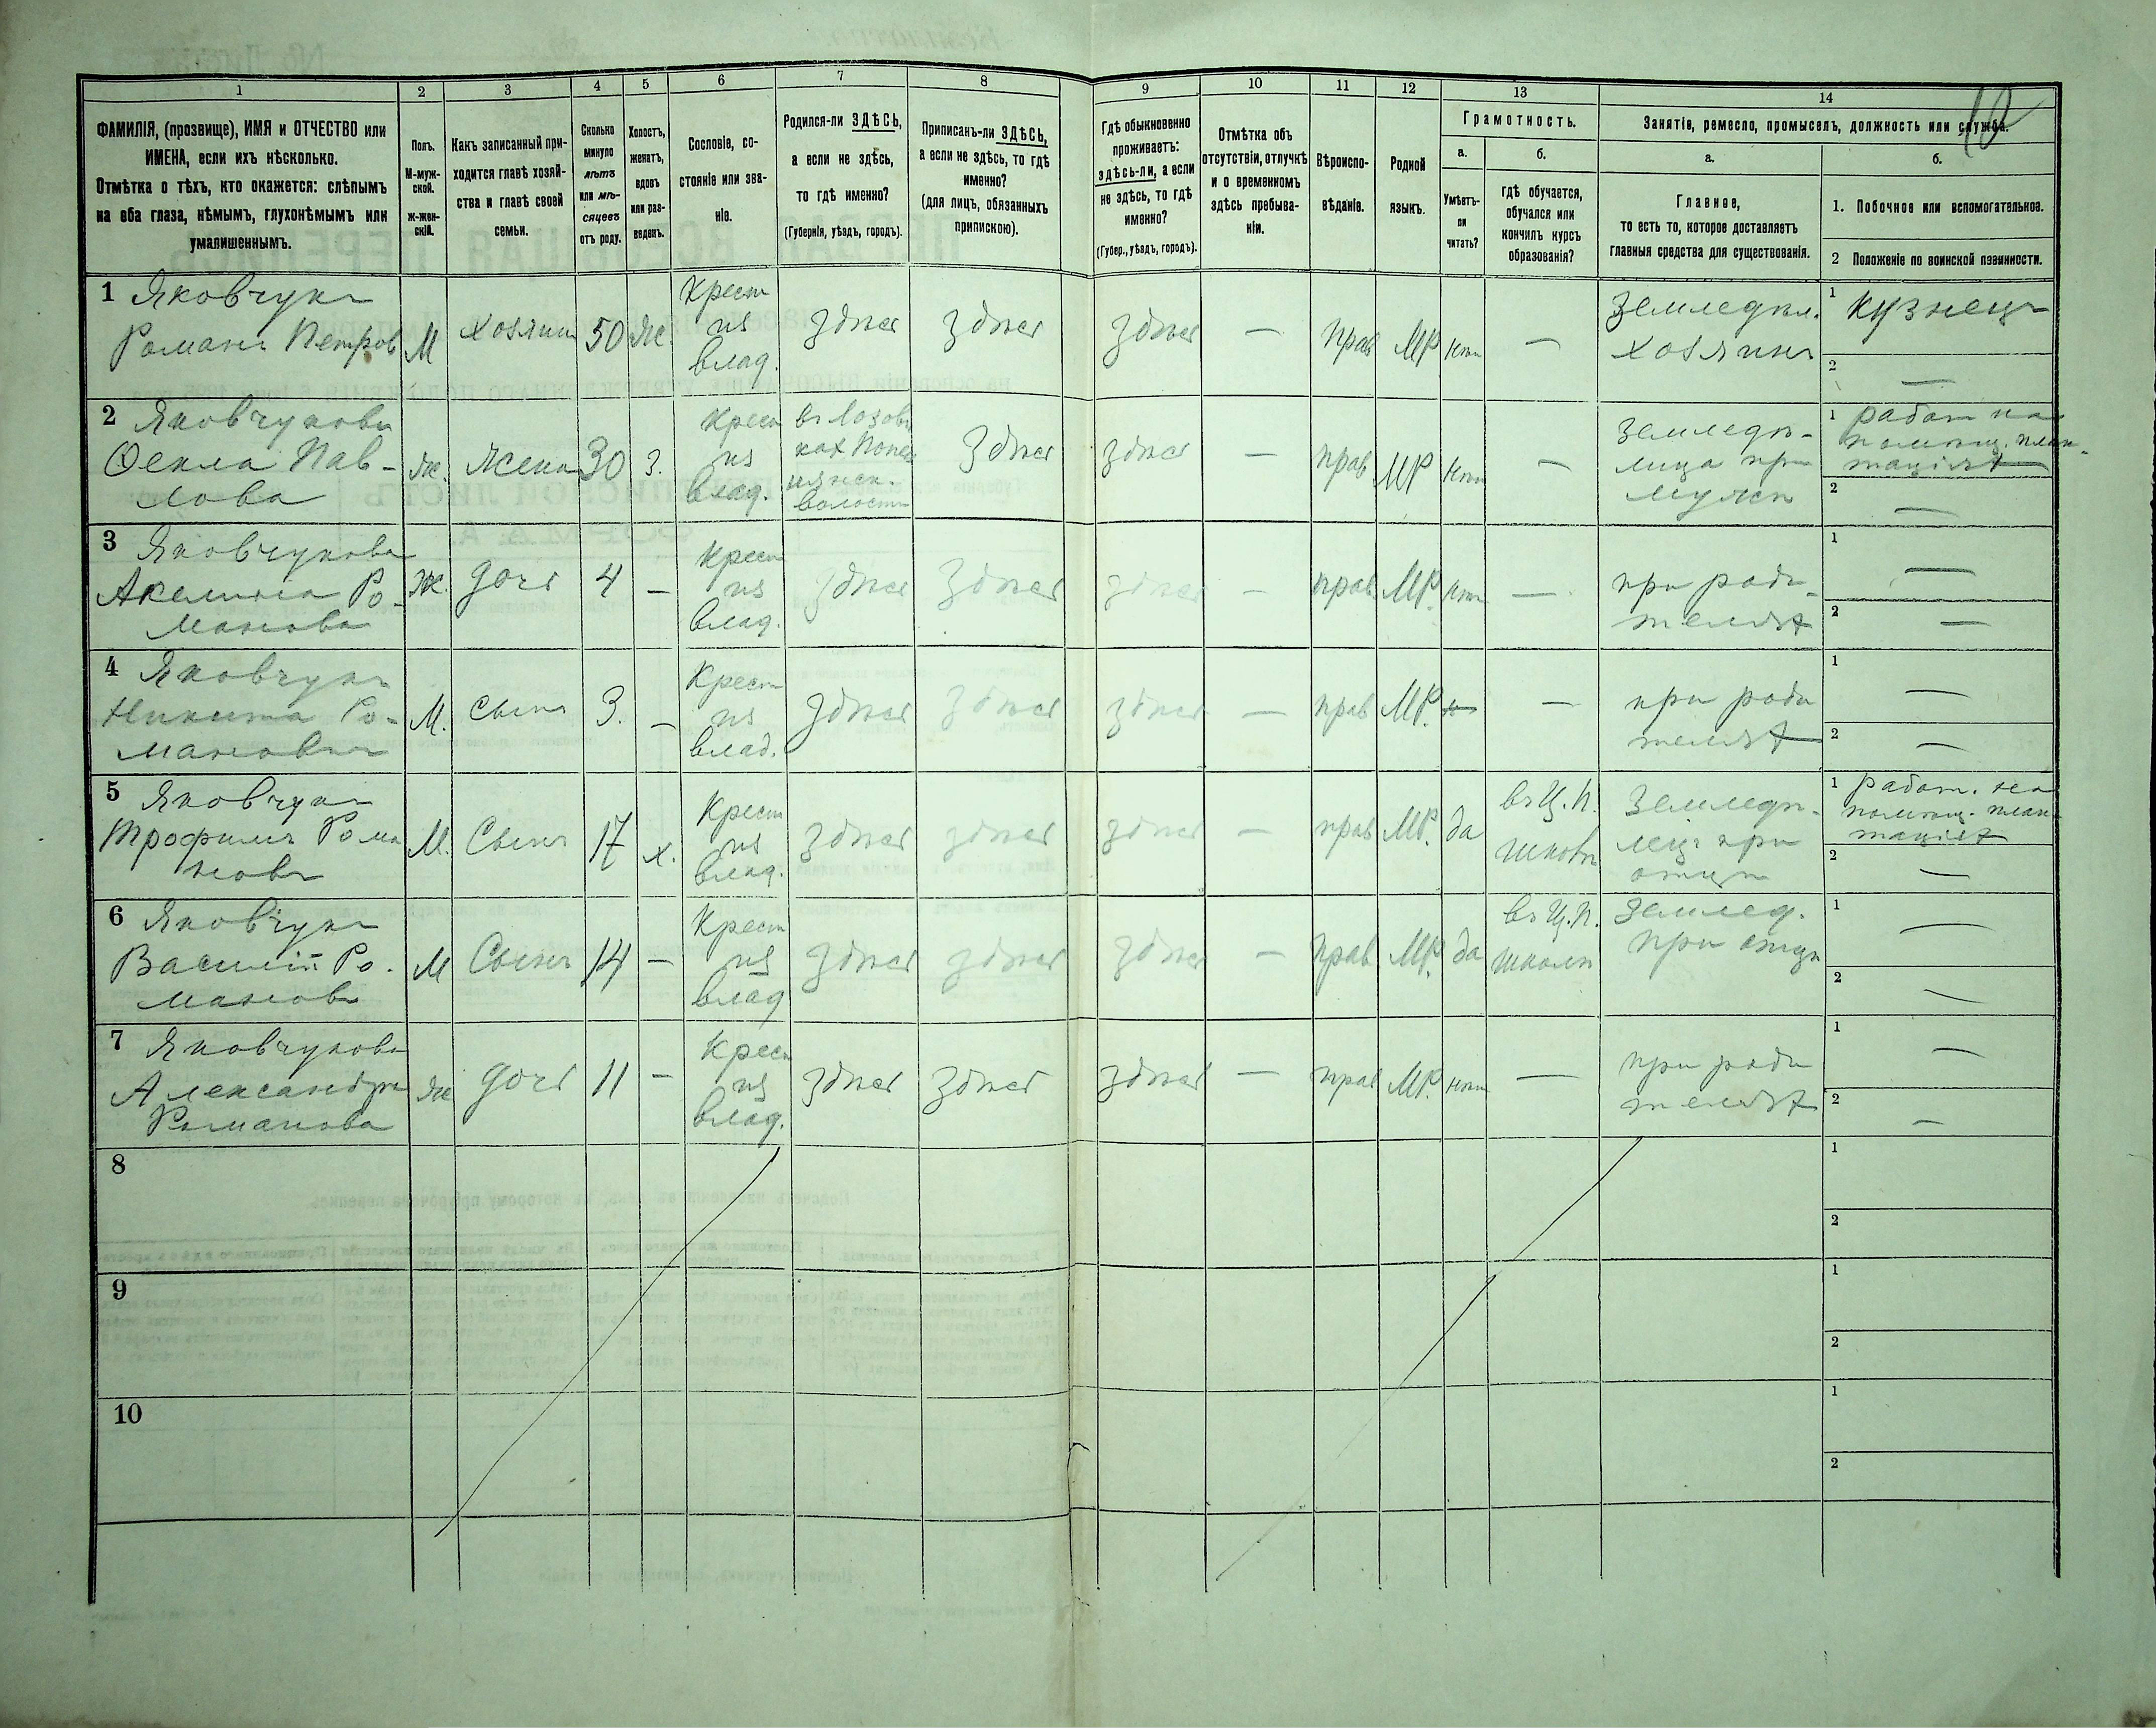 1
2
3
4
5
6
7
8
9
10
11
12
13
14
10
ФАМИЛІЯ, (прозвище), ИМЯ и ОТЧЕСТВО или
ИМЕНА, если ихъ нѣсколько.
Отмѣтка о тѣхъ, кто окажется: слѣпымъ
на оба глаза, нѣмымъ, глухонѣмымъ или
умалишеннымъ.
Полъ.
М-муж-
ской.
ж-жен-
скій.
Какъ записанный при-
ходится главѣ хозяй-
ства и главѣ своей
семьи.
Сколько
минуло
лѣтъ
или мѣ-
сяцевъ
отъ роду.
Холостъ,
женатъ,
вдовъ
или раз-
веденъ.
Сословіе, со-
стояніе или зва-
ніе.
Родился-ли ЗДѢСЬ,
а если не здѣсь,
то гдѣ именно?
(Губернія, уѣздъ, городъ).
Приписанъ-ли ЗДѢСЬ,
а если не здѣсь, то гдѣ
именно?
(для лицъ, обязанныхъ
припискою).
Гдѣ обыкновенно
проживаетъ:
здѣсь-ли, а если
не здѣсь, то гдѣ
именно?
(Губер., уѣздъ, городъ).
Отмѣтка объ
отсутствіи, отлучкѣ
и о временномъ
здѣсь пребыва-
ніи.
Вѣроиспо-
вѣданіе.
Родной
языкъ.
Грамотность.
а.
Умѣетъ-
ли
читать?
б.
гдѣ обучается,
обучался или
кончилъ курсъ
образованія?
Занятіе, ремесло, промыселъ, должность или служба.
а.
Главное,
то есть то, которое доставляетъ
главныя средства для существованія.
б.
1. Побочное или вспомогательное.
2 Положеніе по воинской повинности.
1 Яковчукъ
Романъ Петров
М
хозяинъ
50
Же.
Крест
из
влад.
здѣсь
здѣсь
здѣсь
—
прав
МР
нѣтъ
—
Земледѣл.
хозяинъ
1 Кузнецъ
2 —
2 Яковчукова
Ѳекла Пав-
лова
Же.
Жена
30
З.
Крест
из
влад.
въ Лозови
ках
волости
здѣсь
здѣсь
—
прав
МР
нѣтъ
—
Земледѣ-
лица при
мужѣ
1 работ на
помѣщ. план-
таціях
2 —
3 Яковчукова
Акелина Ро-
манова
Ж.
дочь
4
—
Крест
из
влад.
здѣсь
здѣсь
здѣсь
—
прав
МР.
нѣтъ
—
при роди-
телях
1 —
2 —
4 Яковчукъ
Никита Ро-
манович
М.
Сынъ
3.
—
Крест
из
влад.
здѣсь
здѣсь
здѣсь
—
прав
МР.
—
при роди
телях
1 —
2 —
5 Яковчукъ
Трофимъ Рома
новъ
М.
Сынъ
17
х.
Крест
из
влад.
здѣсь
здѣсь
здѣсь
—
прав
МР.
да
въ Ц. П.
школѣ
Земледѣ-
лецъ при
отцѣ
1 работ. на
помѣщ. план-
таціях
2 —
6 Яковчукъ
Василій Ро.
мановъ
М
Сынъ
14
—
Крест
из
влад
здѣсь
здѣсь
здѣсь
—
прав
МР.
да
въ Ц. П.
школѣ
Землед.
при отцѣ
1 —
2 —
7 Яковчукова
Александра
Романова
Же
дочь
11
—
Крест
из
влад.
здѣсь
здѣсь
здѣсь
—
прав
МР.
нѣтъ
—
при роди
телях
1 —
2 —
8
1
2
9
1
2
10
1
2